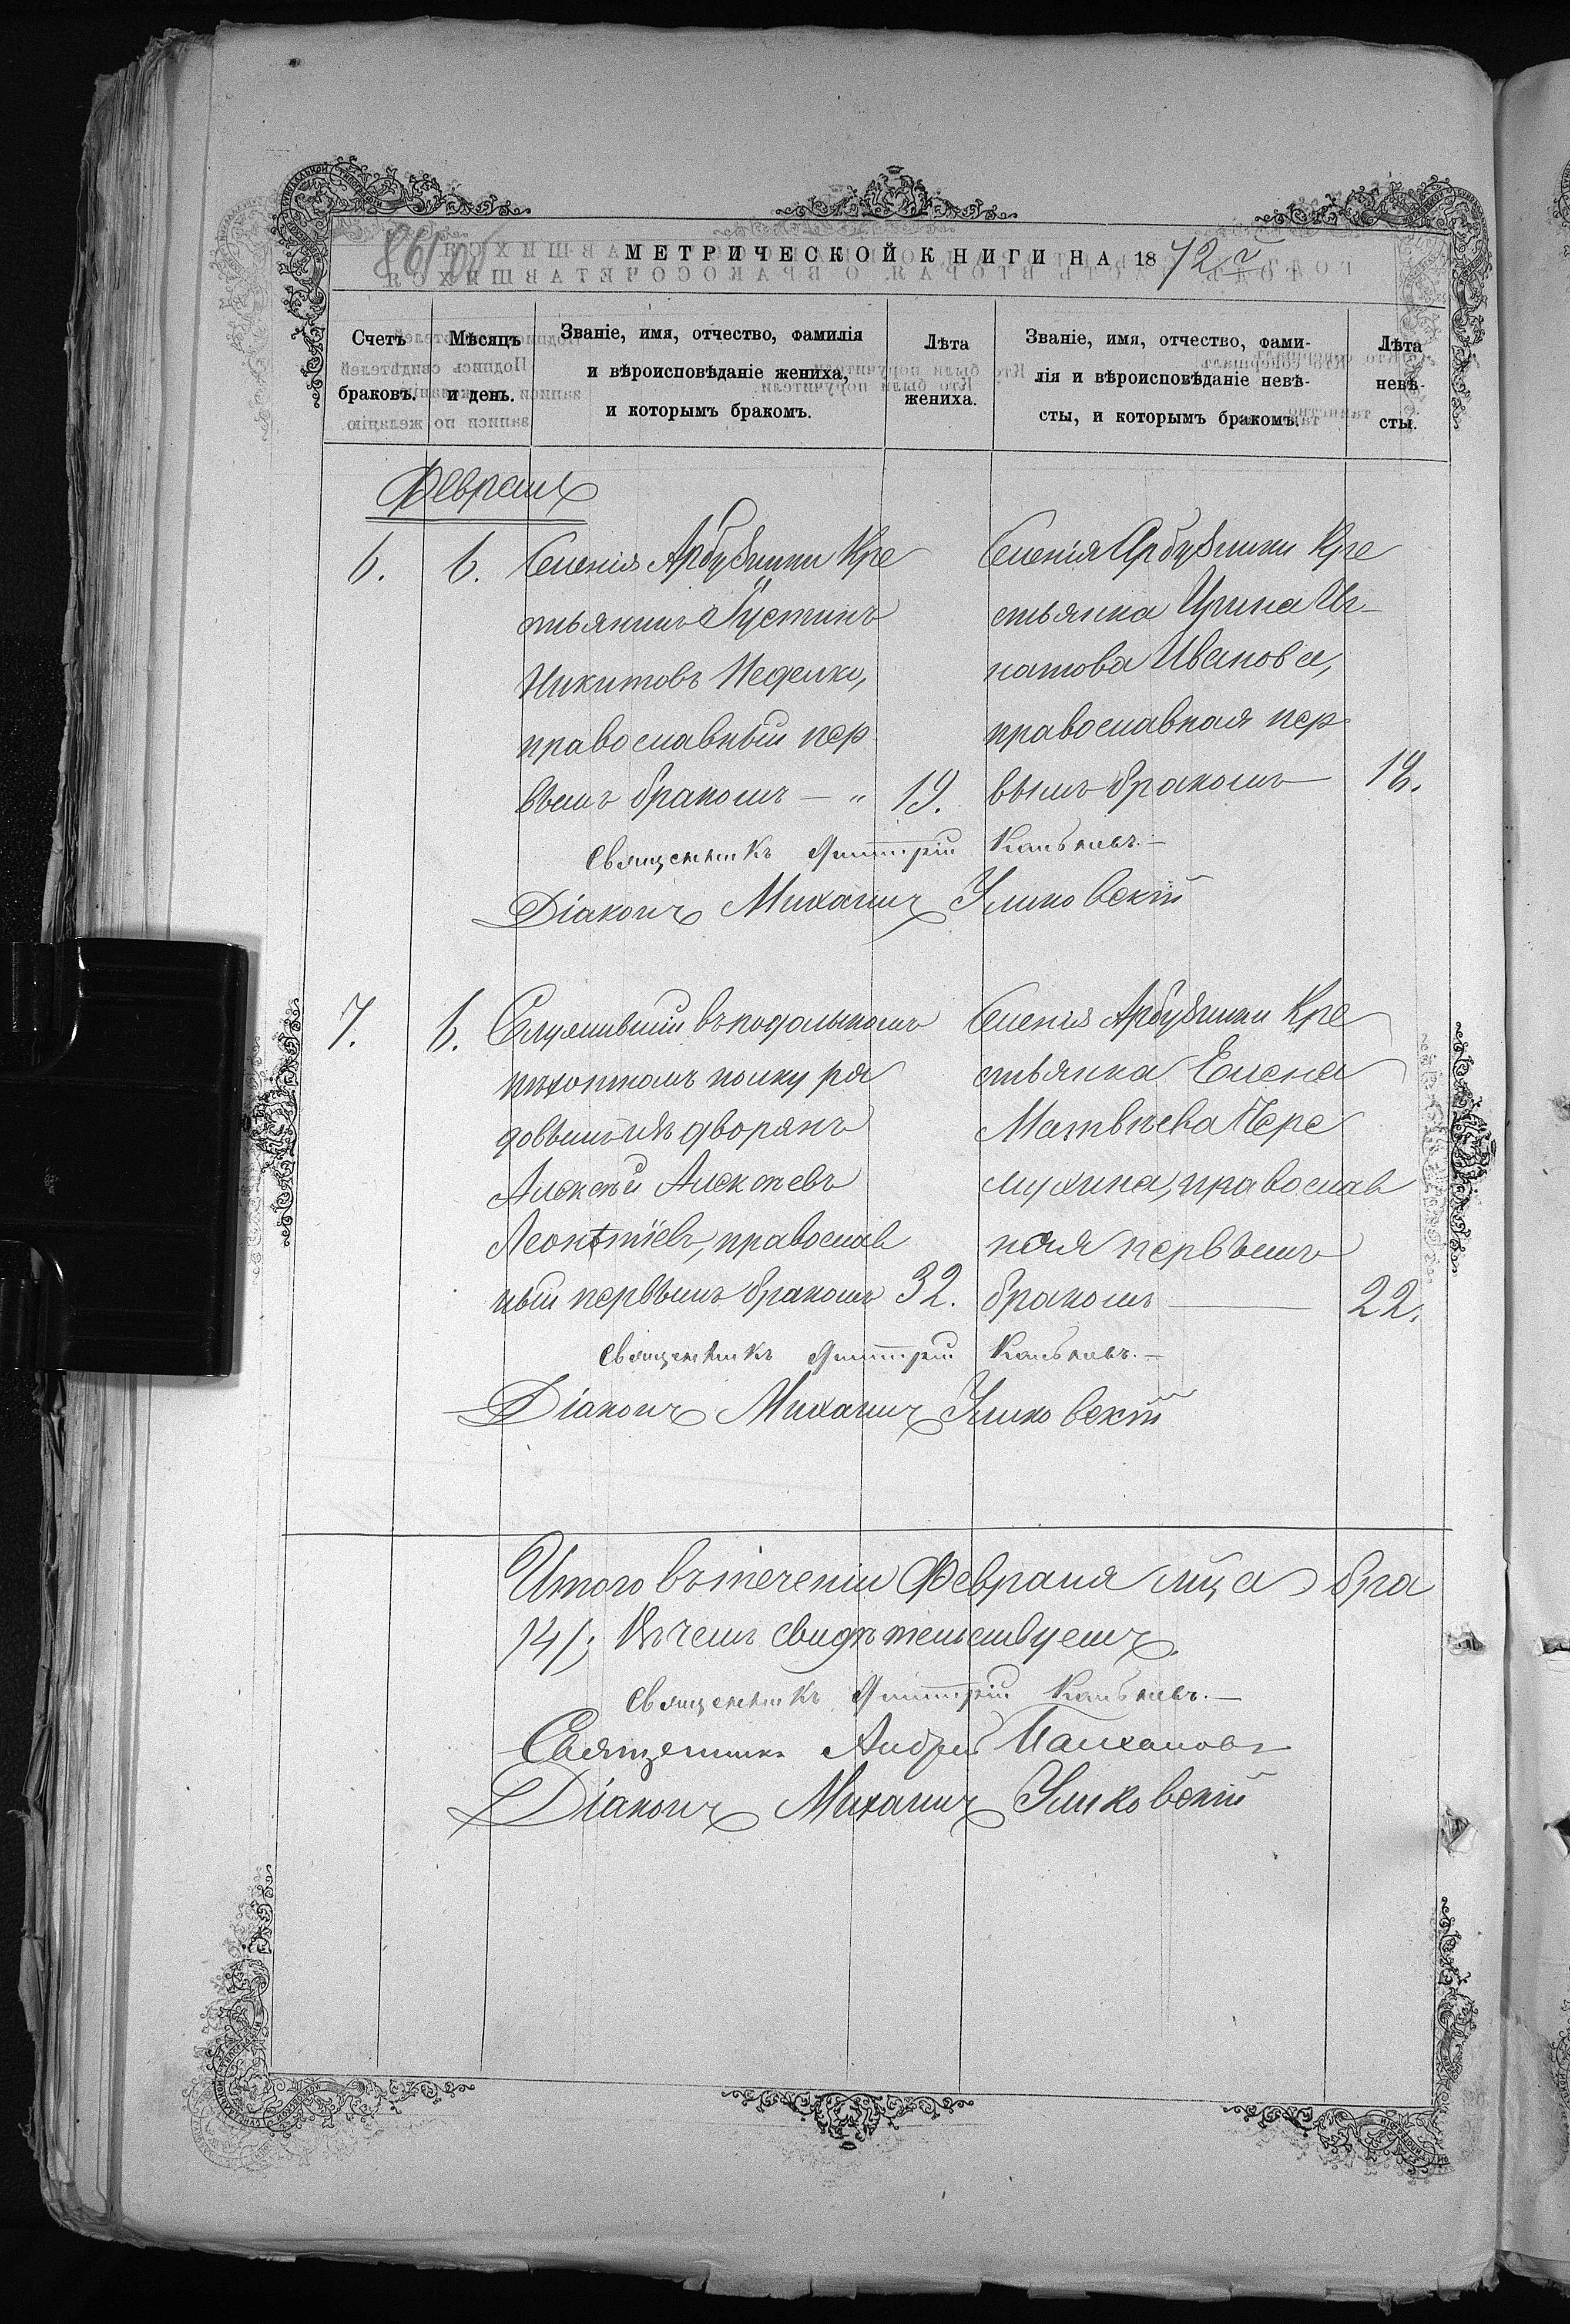 МЕТРИЧЕСКОЙ КНИГИ НА 1872 г.
Счетъ браковъ.
Мѣсяцъ и день.
Званіе, имя, отчество, фамилія
и вѣроисповѣданіе жениха,
и которымъ бракомъ.
Лѣта жениха.
Званіе, имя, отчество, фами-
лія и вѣроисповѣданіе невѣ-
сты, и которымъ бракомъ.
Лѣта невѣ-
сты.
Февраль
6. 6. Селенія Арбузинки Кре
стьянинъ Іустинъ
Никитовъ Неделко,
православный пер
вымъ бракомъ — „ 19.
Селенія Арбузинки Кре
стьянка Ирина Иг-
натова Иванова,
православная пер
вымъ бракомъ — 18.
Священникъ Димитрій
Діаконъ Михаилъ
7. 6. Служившій въ подольскомъ
пѣхотномъ полку ря
довымъ изъ дворянъ
Алексѣй Алексѣевъ
Леонтіевъ, православ
ный первымъ бракомъ 32.
Селенія Арбузинки Кре
стьянка Елена
Матвѣева Чере
мухина, православ
ная первымъ
бракомъ — 22.
Священникъ Димитрій
Діаконъ Михаилъ
Итого въ теченіи Февраля мца бра
/4/; Въ чемъ свидѣтельствуемъ.
Священникъ Димитрій
Священникъ Андрей
Діаконъ Михаилъ